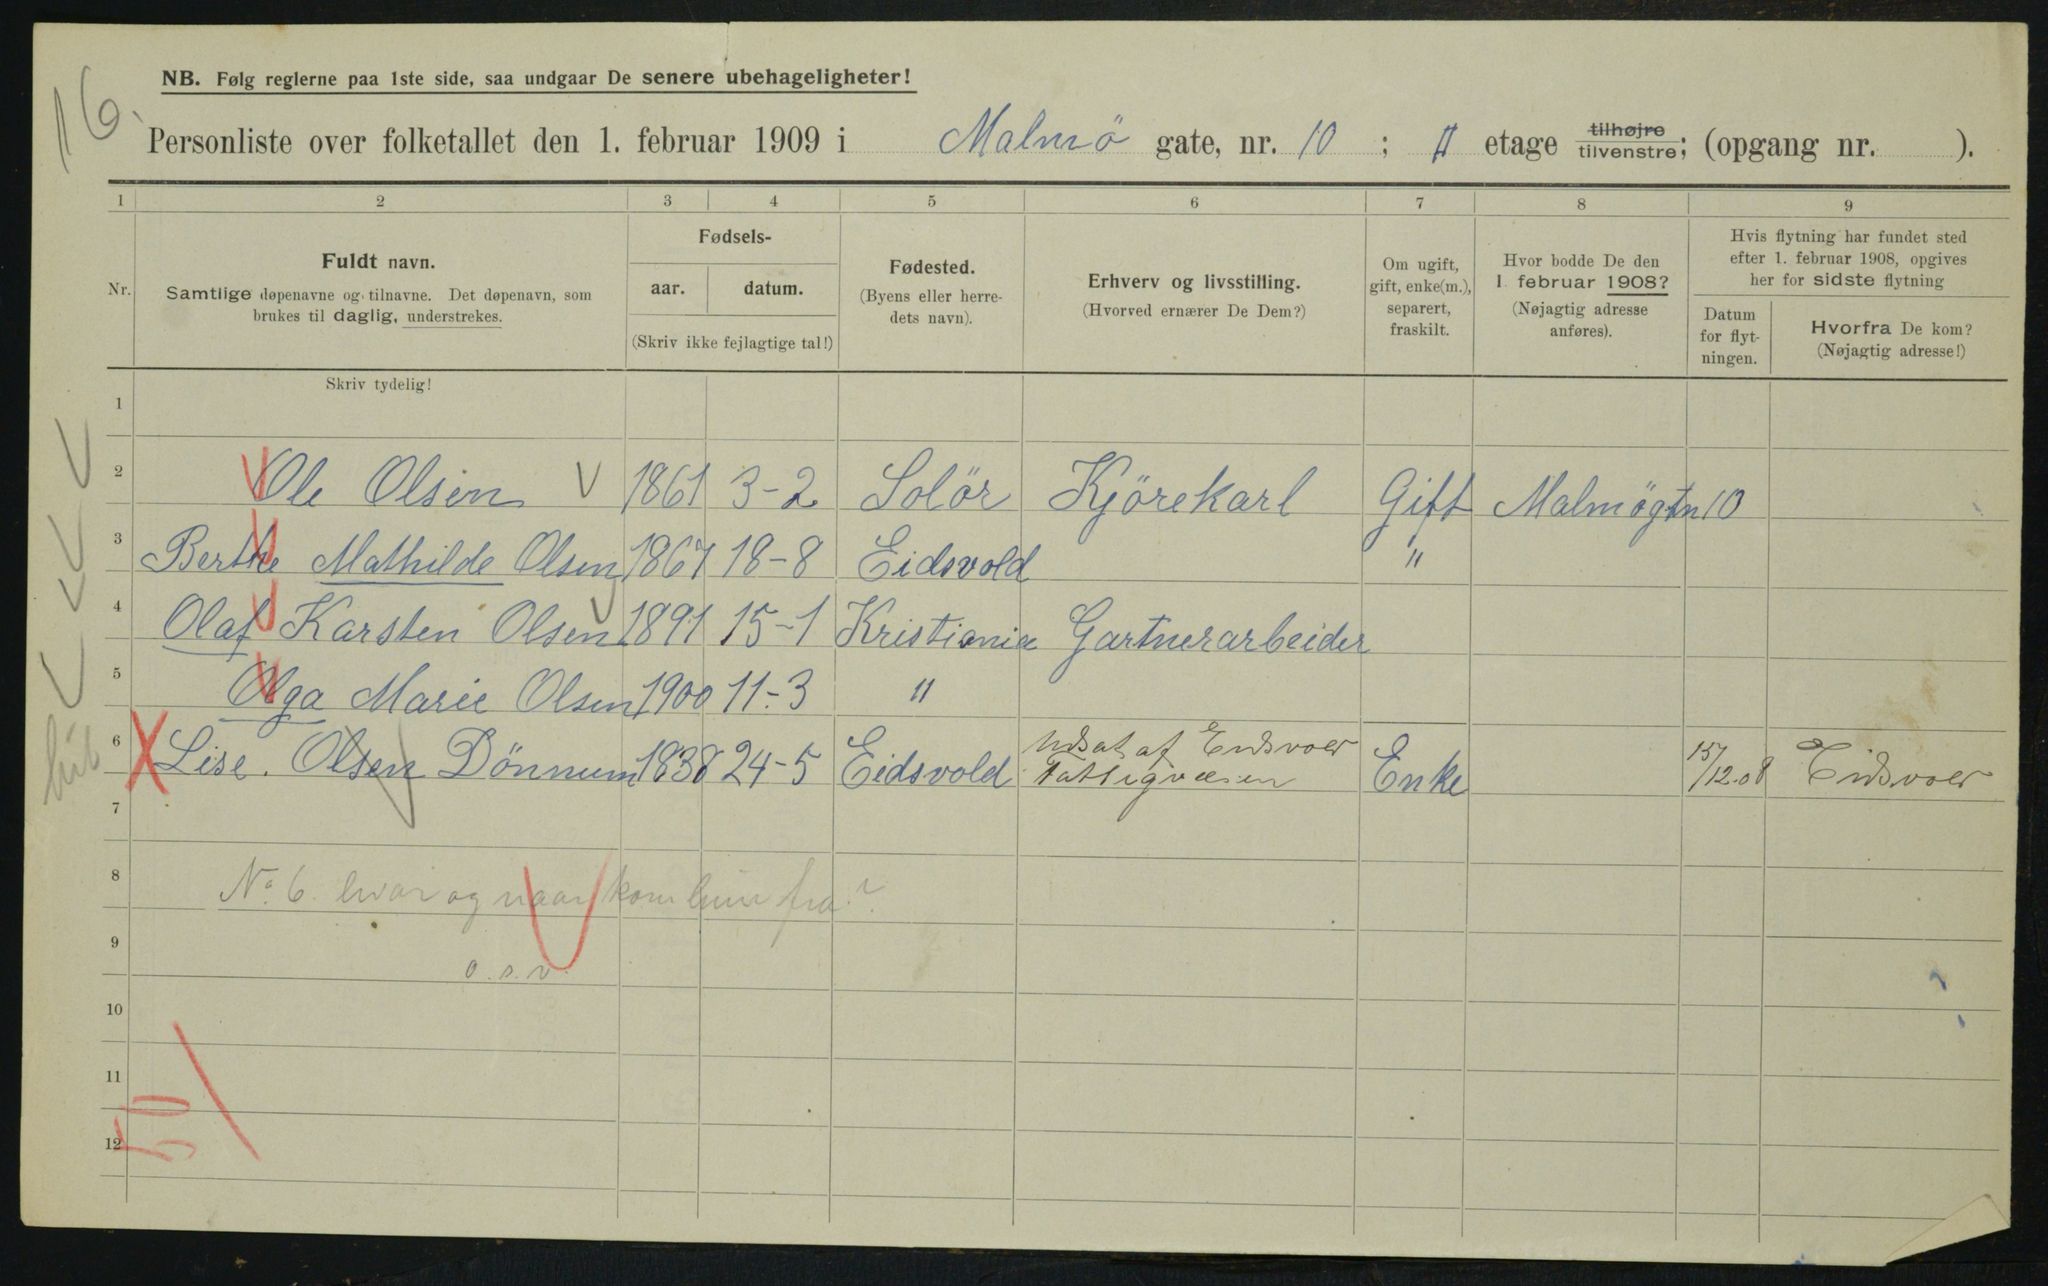 16.
NB. Følg reglerne paa 1ste side, saa undgaar De senere ubehageligheter!
Personliste over folketallet den 1. februar 1909 i Malmö gate, nr. 10 ; II etage tilhøjre tilvenstre; (opgang nr. ).
1 2 3 4 5 6 7 8 9
Nr.
Fuldt navn.
Samtlige døpenavne og tilnavne. Det døpenavn, som
brukes til daglig, understrekes.
Fødsels-
aar. datum.
(Skriv ikke fejlagtige tal!)
Fødested.
(Byens eller herre-
dets navn).
Erhverv og livsstilling.
(Hvorved ernærer De Dem?)
Om ugift,
gift, enke(m.),
separert,
fraskilt.
Hvor bodde De den
1. februar 1908?
(Nøjagtig adresse
anføres).
Hvis flytning har fundet sted
efter 1. februar 1908, opgives
her for sidste flytning
Datum
for flyt-
ningen.
Hvorfra De kom?
(Nøjagtig adresse!)
Skriv tydelig!
1
2 Ole Olsen 1861 3-2 Solör Kjörekarl Gift Malmögtn 10
3 Berthe Mathilde Olsen 1867 18-8 Eidsvold "
4 Olaf Karsten Olsen 1891 15-1 Kristiania Gartnerarbeider
5 Olga Marie Olsen 1900 11-3 "
6 Lise. Olsen Dönnum 1838 24-5 Eidsvold Udsat af Eidsvold Fattigvæsen Enke 15/12.08 Eidsvold
7
8 No 6. hvor og naar kom hun fra?
9 o.s.v.
10
11
12
50